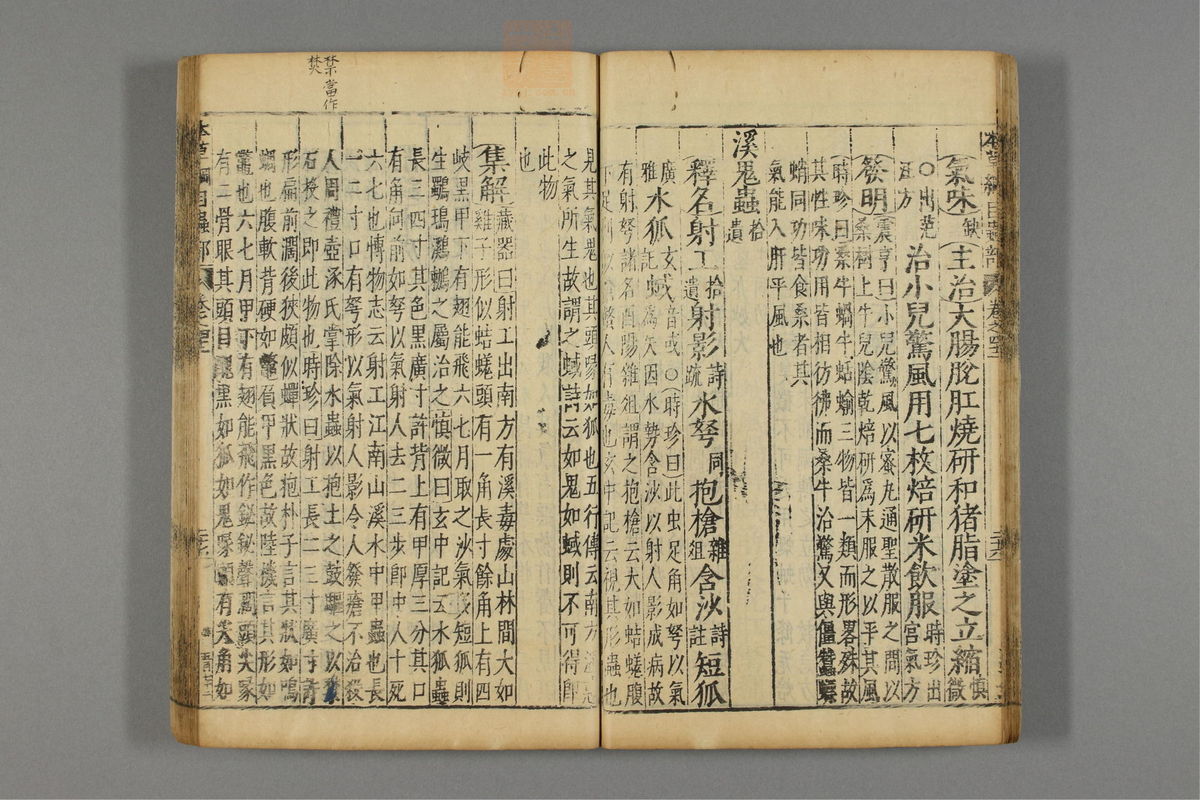 氣味缺主治大腸脫肛燒研和猪脂塗之立縮愼微
○出范汪方治小兒驚風用七枚焙研米飲服時珍出宫氣方
發明震亨曰小兒驚風以蜜丸通聖散服之間以
桑樹上牛兒陰乾焙研爲末服之以平其風
時珍曰桑牛蝸牛蛞蝓三物皆一類而形畧殊故
其性味功用皆相彷彿而桑牛治驚又與僵蠶螵
蛸同功皆食桑者其
氣能入肝平風也
溪鬼蟲拾遺
釋名射工拾遺射影詩疏水弩同抱槍雜俎含沙詩註短狐
廣雅水狐玄中記蜮音或○時珍曰此虫足角如弩以氣
爲矢因水勢含沙以射人影成病故
有射弩諸名酉陽雜俎謂之抱槍云大如蛣蜣腹
下足刺似鎗螫人有毒也玄中記云視其形蟲也
見其氣鬼也其頭喙如狐也五行傳云南方
之氣所生故謂之蜮詩云如鬼如蜮則不可得卽
此物
也
集解藏器曰射工出南方有溪毒處山林間大如
雞子形似蛣蜣頭有一角長寸餘角上有四
岐黑甲下有翅能飛六七月取之沙氣長短狐則
生鸀鳿鸂鶒之屬治之愼微曰玄中記云水狐蟲
長三四寸其色黑廣寸許背上有甲厚三分其口
有角向前如弩以氣射人去二三步卽中人十死
六七也博物志云射工江南山溪水中甲蟲也長
一二寸口有弩形以氣射人影令人發瘡不治殺
人周禮壺涿氏掌除水蟲以抱土之鼓敺之以禁
石投之卽此物也時珍曰射工長二三寸廣寸許
形扁前濶後狹頗似蟬狀故抱朴子言其狀如鳴
蜩也腹軟背硬如鱉負甲黑色故陸機言其形如
鱉也六七月甲下有翅能飛作鉍鉍聲濶頭尖喙
有二骨眼其頭目醜黑如狐如鬼喙頭有尖角如
本草綱目蟲部 卷之四二
禁當作
焚